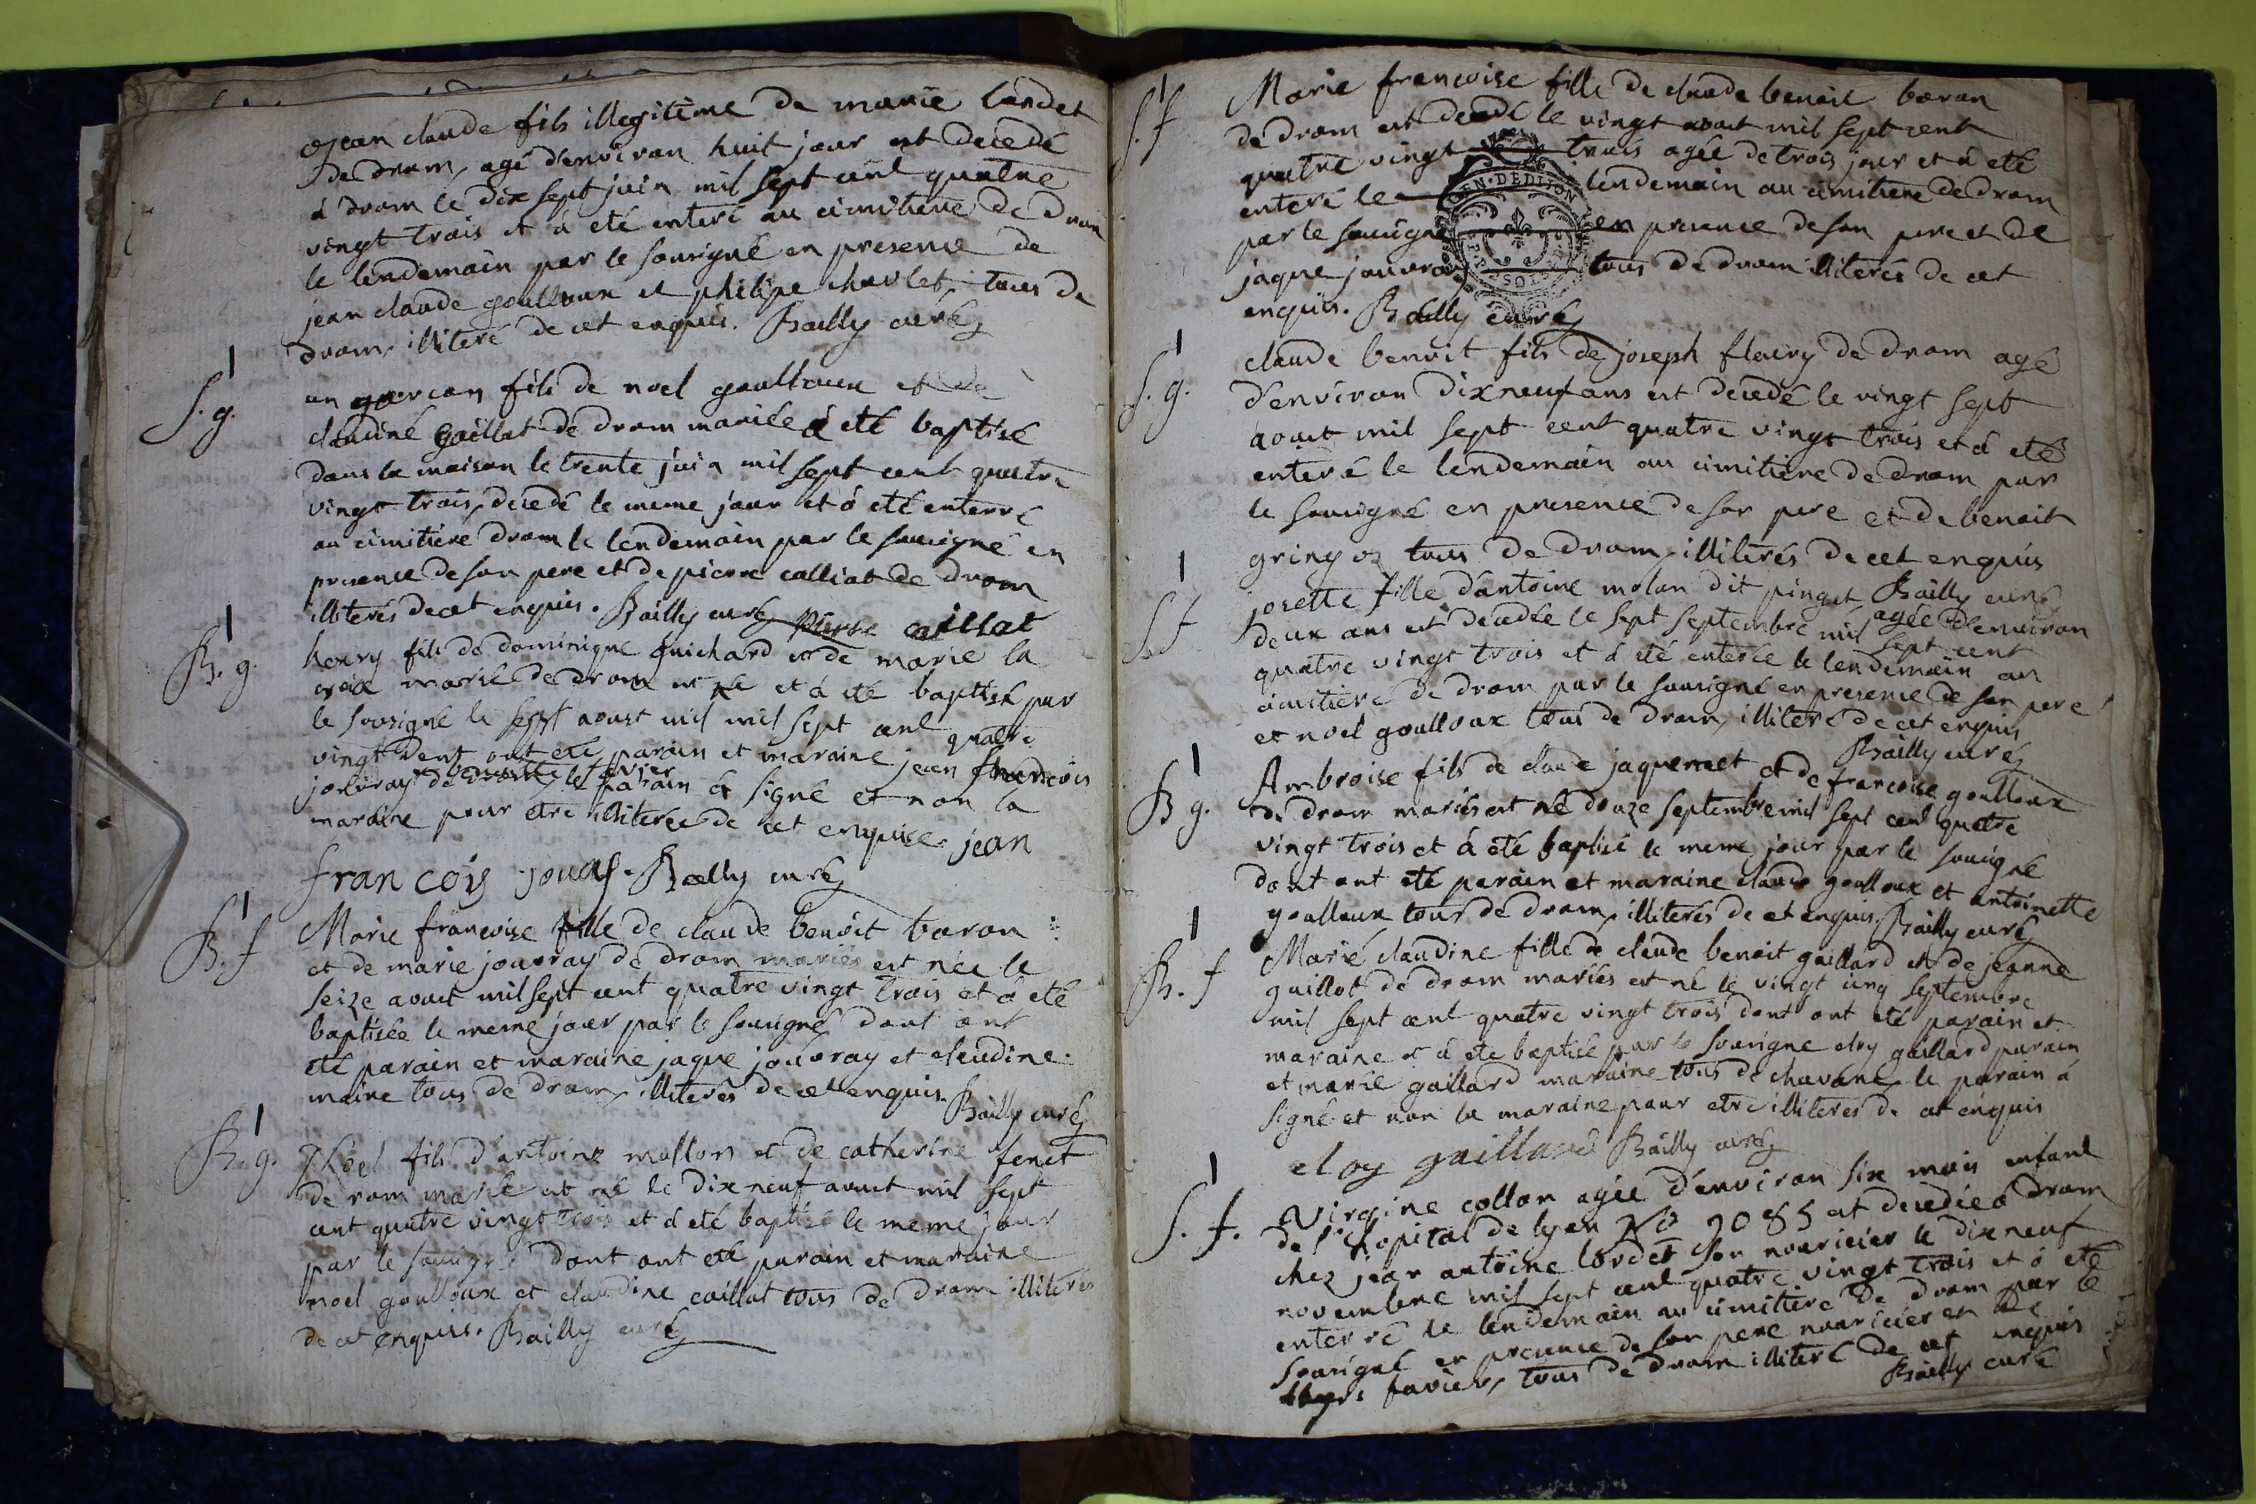 jean claude fils illegitime de marie landet
de dram, agé d'enviran huit jour est decedé
á dram le dix sept juin mil sept cent quatre
vingt trais et á eté enteré au cimitiere de dram
le lendemain par le sousigné en presence de
jean claude goulloux et philipe charlet, tous de
dram, illiteré de cet enquis. Bailly curé
S. g.
un garcan fils de noel goulloux et de
claudine gaillat de dram mariée á eté baptisé
dans la maison le trente juin mil sept cent quatre
vingt trais, decedé le meme jour et á eté enterré
au cimitiére dram le lendemain par le sousigné en
presence de son pere et de pierre calliat de dram
illiterés de cet enquis. Bailly curé pierre caillat
B. g.
henry fils de dominique guichard et de marie la
croix marié de dram et né et á eté baptisé par
le sousigné le sept aoust mil mil sept cent quatre
vingt dont ont eté parain et maraine jean francois
jouvray de le parain á signé et non la
maraine pour etre illiterée de cet enquise. jean
francois jouaf. Bailly curé
B. f
Marie francoise fille de claude benoit baron
et de marie jouvray de dram mariés est née le
seize aout mil sept cent quatre vingt trais et á eté
baptisée le meme jour par le sousigné dont ont
eté parain et maraine jaque jouvray et claudine
maine tous de dram, illiterés de cet enquis.
Bailly curé
B. g.
Noel fils d'antoine mollon et de catherine fenet
de ram marié est né le dix neuf aout mil sept
cent quatre vingt trois et á eté baptisé le meme jour
par le sousigné dont ont eté parain et maraine
noel goulloux et claudine caillat tous de dram illiterés
de cet enquis. Bailly curé
S. f
Marie francoise fille de claude benoit baron
de dram est decedé le vingt aout mil sept cent
quatre vingt trais agée de trois jour et á eté
enteré le lendemain au cimitiere de dram
par le sousigné en presence de son pere et de
jaque jouvray tous de dram illiterés de cet
enquis. Bailly curé
S. g.
claude benoit fils de joseph fleury de dram agé
d'enviran dix neuf ans est decedé le vingt sept
aout mil sept cent quatre vingt trois et á eté
enteré le lendemain au cimitiere de dram par
le sousigné en presence de son pere et de benoit
gringoz tous de dram, illiterés de cet enquis
Bailly curé
S f
josette fille d'antoine molan dit pinget agée d'enviran
deux ans est decedée le sept septembre mil sept cent
quatre vingt trois et á eté enterée le lendemain au
cimitiere de dram par le sousigné en presence de son pere
et noel goulloux tous de dram, illiteré de cet enquis
Bailly curé
B g.
Ambroise fils de claude jaquemet et de francoise goulloux
de dram mariés est né douze septembre mil sept cent quatre
vingt trois et á eté baptisé le meme jour par le sousigné
dont ont eté parain et maraine claude goulloux et antoinette
goulloux tous de dram, illiterés de cet enquis. Bailly curé
B. f
Marie claudine fille de claude benoit gaillard et de jeanne
guillot de dram mariés est né le vingt cinq septembre
mil sept cent quatre vingt trois dont ont eté parain et
maraine et á ete baptisé par le sousigne eloy gaillard parain
et marie gaillard maraine tous de chavane, le parain á
signé et non la maraine pour etre illiterés de cet enquis
eloy gaillard Bailly curé
S. f.
virgine collon agée d'enviran six mois enfant
de l'hopital de lyon No 2085 est decedée á dram
chez jean antoine lordet son nouricier le dix neuf
novembre mil sept cent quatre vingt trais et á eté
enterré le lendemain au cimitiere de dram par le
sousigné en presence de son pere nouricier et de
favier, tous de dram illiteré de cet enquis
Bailly curé